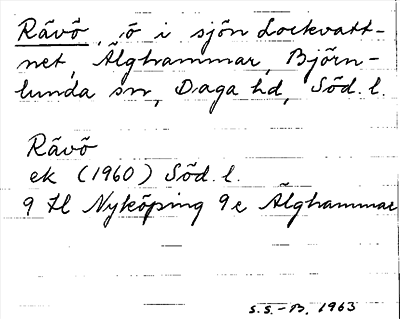 Rävö, ö i sjön Lockvatt-
net, Älghammar, Björn-
lunda sn, Daga hd, Söd. l.
Rävö
ek (1960) Söd. l.
9 H Nyköping 9e Älghammar
S.S.-B. 1963